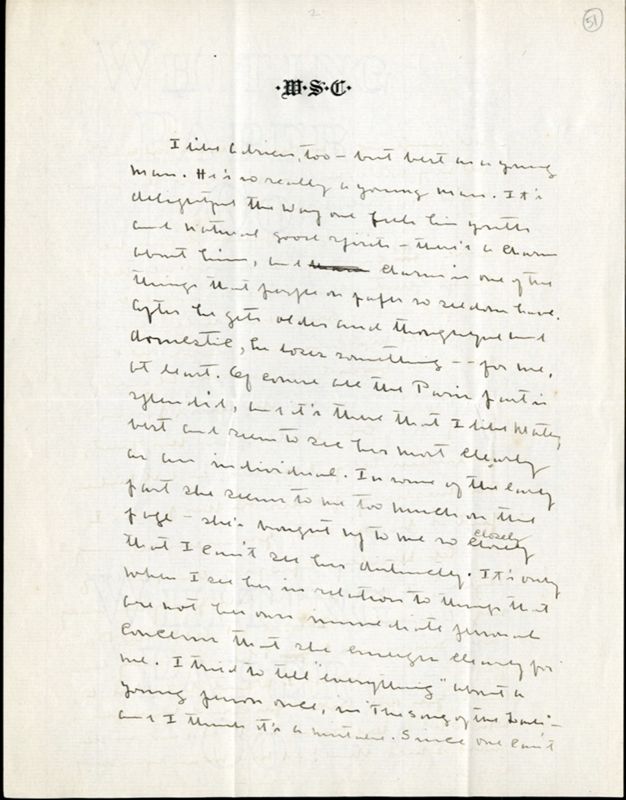 2
51
·W·S·C·
I like Adrien, too – but best as a young
man. He's so really a young man. It's
delightful the way one feels his youth
and natural good spirits – there's a charm
about him, and charm is one of the
things that people on paper so seldom have.
After he gets older and thoughtful and
domestic, he loses something -- for me,
at least. Of course all the Paris part is
splendid, and it's there that I like Mattey
best and seem to see her most clearly
as an individual. In some of the early
part she seems to me too much on the
page – she's brought up to me so closely
closely
that I can't see her distinctly. It's only
when I see her in relation to things that
are not her own immediate personal
concerns that she emerges clearly for
me. I tried to tell "everything" about a
young person once, in The Song of the Lark –
and I think it's a mistake. Since one can't